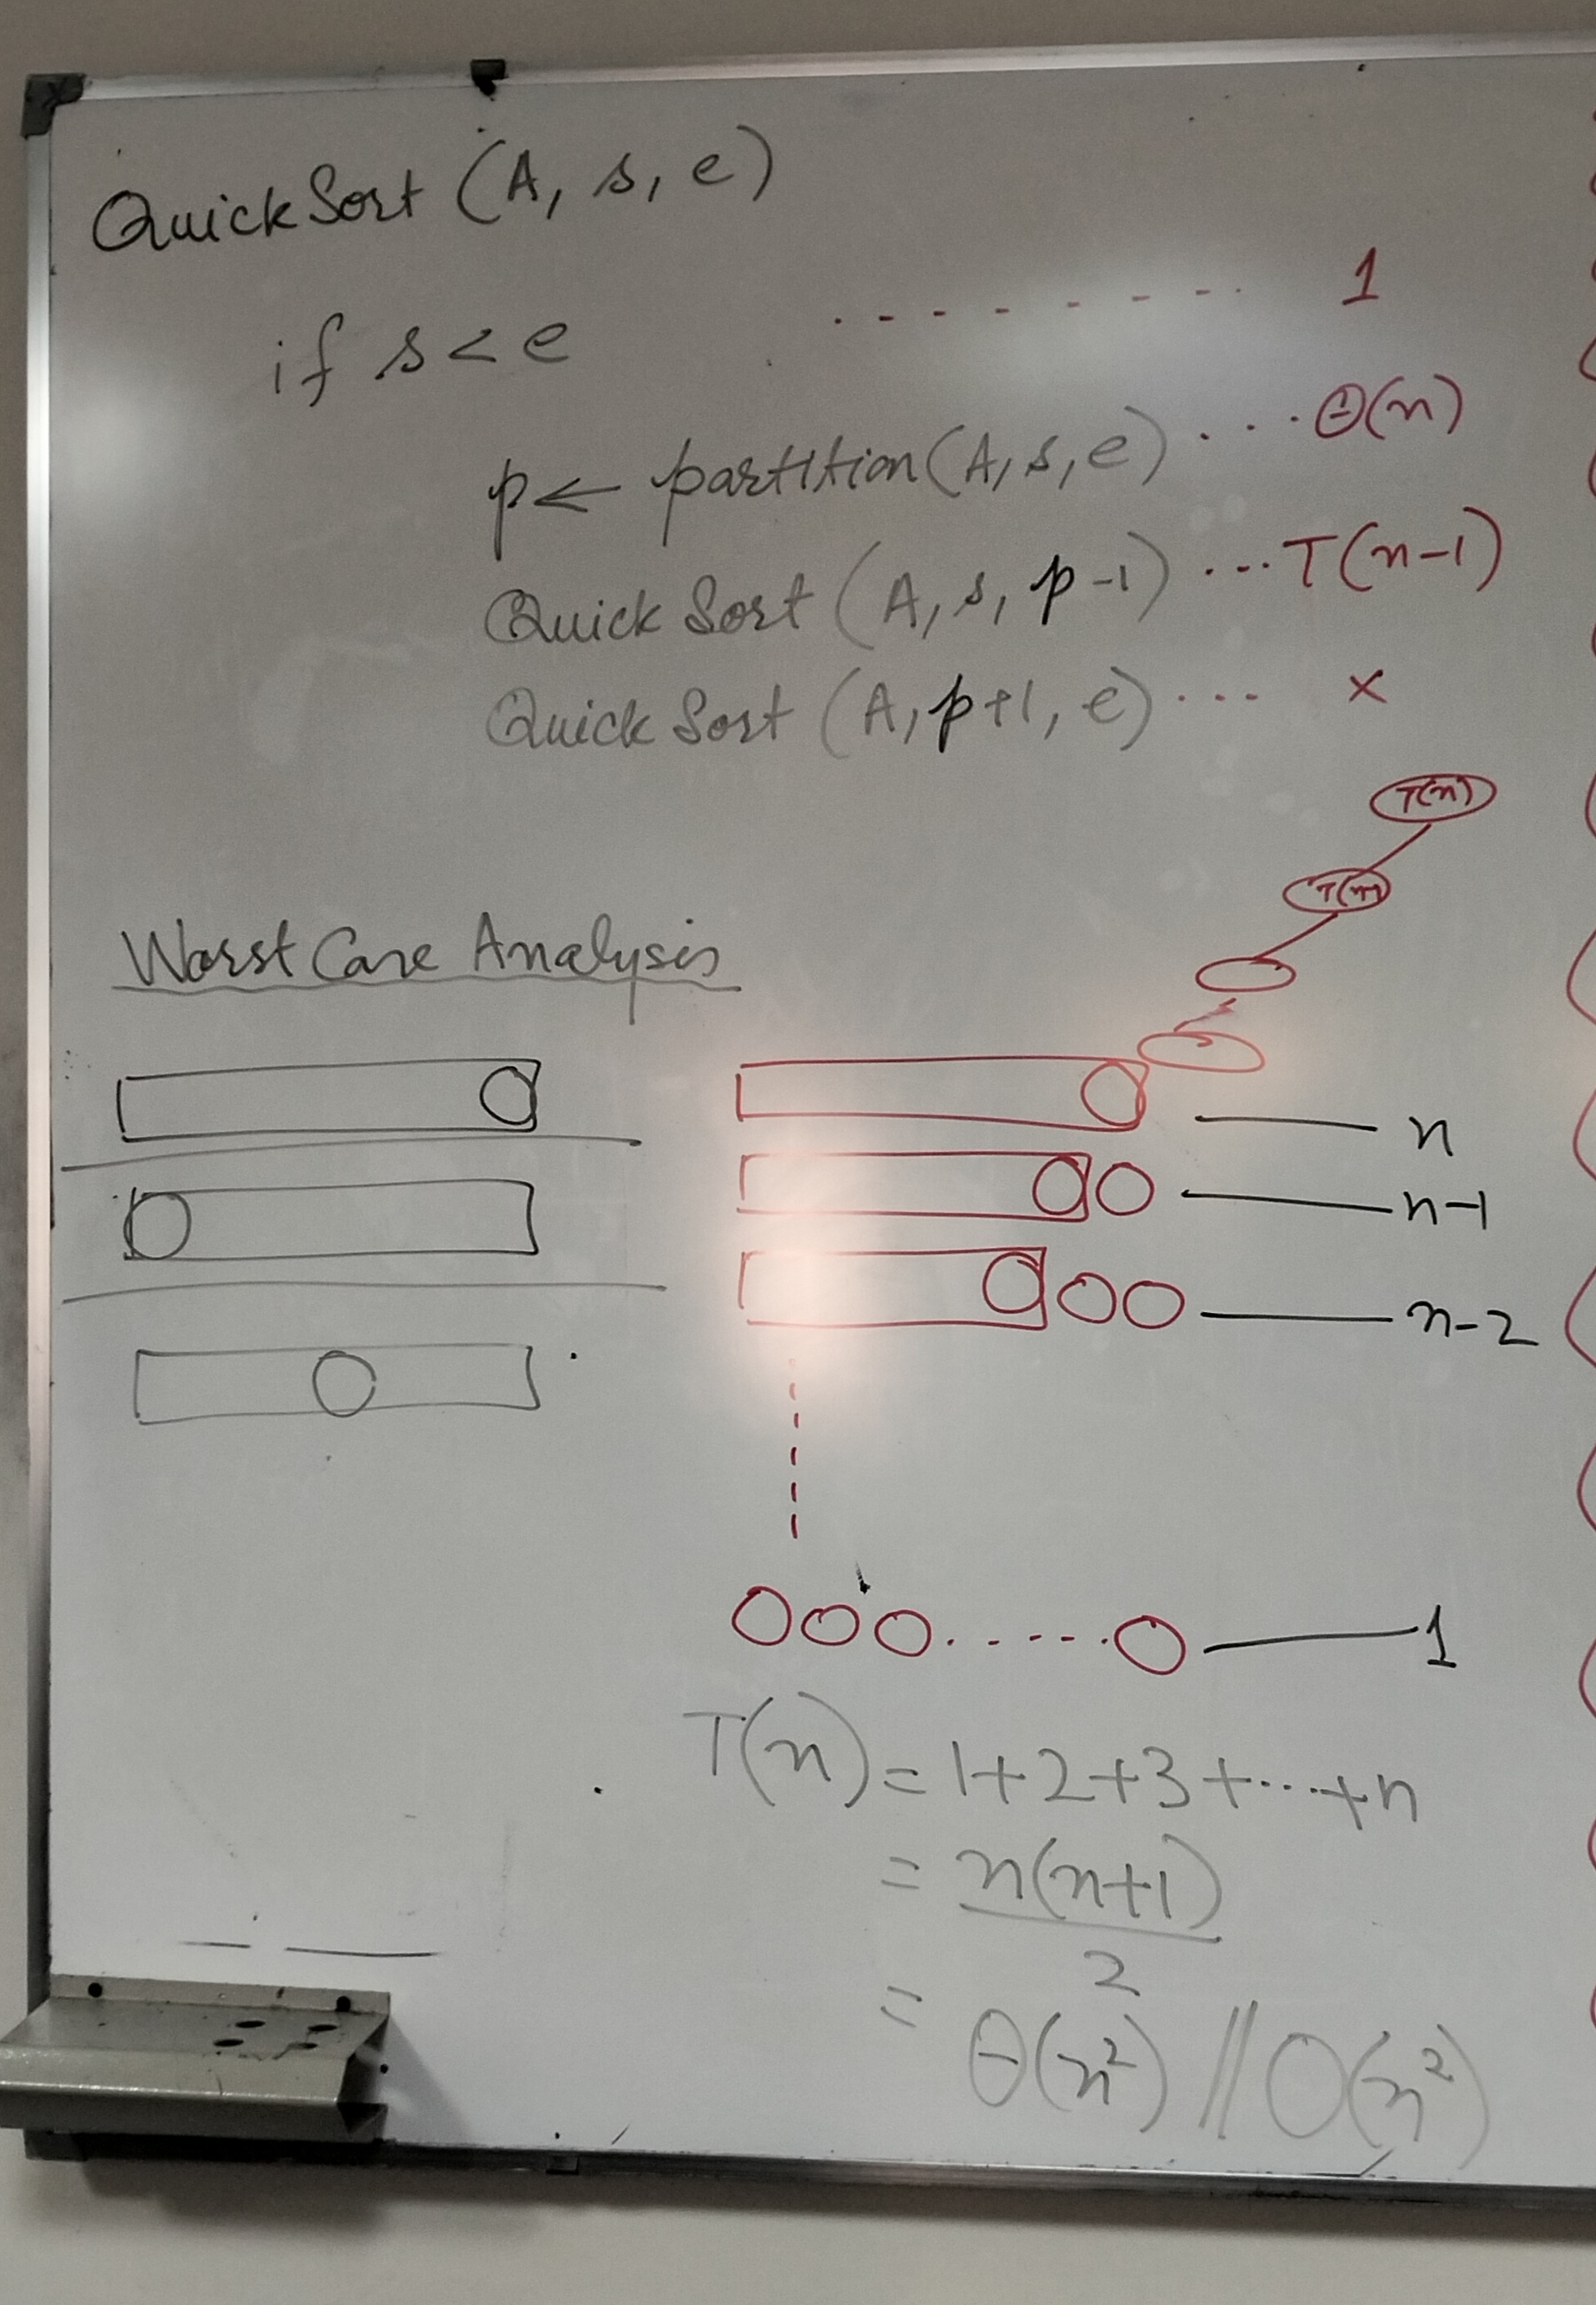 QuickSort (A, s, e)
if s < e - - - - - - - 1
p ← partition(A, s, e) ... Θ(n)
Quick Sort (A, s, p-1) ... T(n-1)
Quick Sort (A, p+1, e) ... ×
T(n)
Worst Case Analysis
n
n-1
n-2
1
T(n) = 1+2+3+...+n
= n(n+1)
2
= Θ(n²) // O(n²)